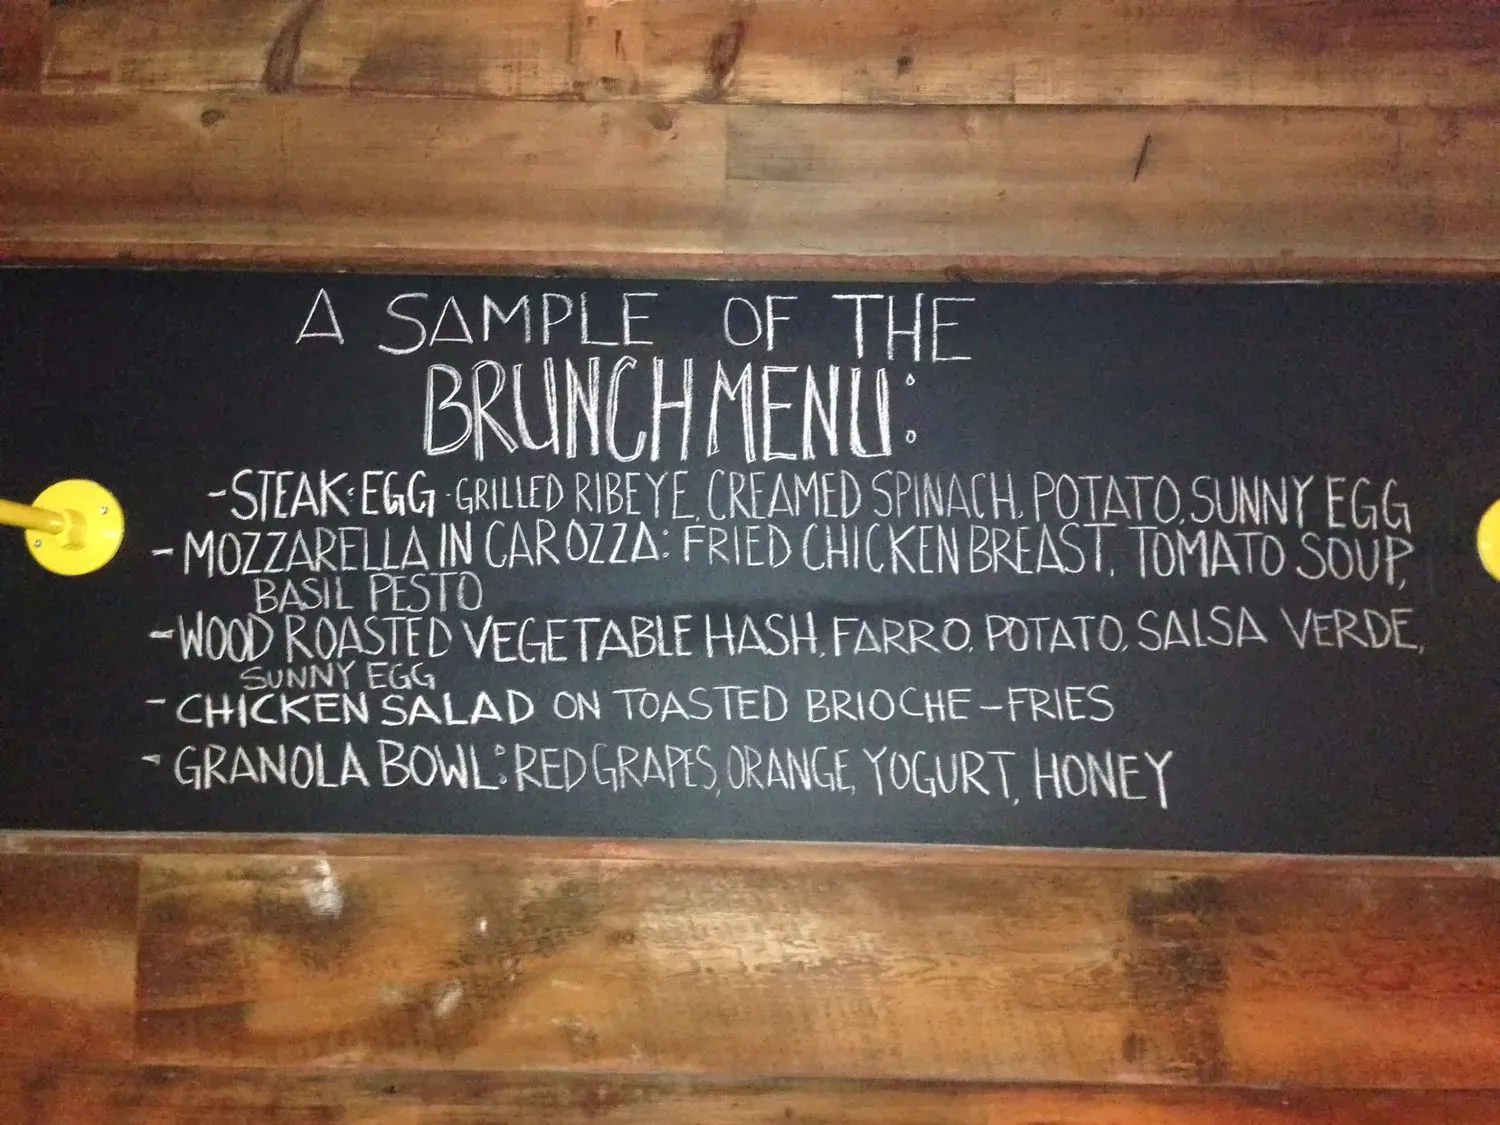 A SAMPLE OF THE
BRUNCH MENU:
-STEAK & EGG - GRILLED RIBEYE, CREAMED SPINACH, POTATO, SUNNY EGG
- MOZZARELLA IN CAROZZA: FRIED CHICKEN BREAST, TOMATO SOUP,
BASIL PESTO
-WOOD ROASTED VEGETABLE HASH, FARRO, POTATO, SALSA VERDE,
SUNNY EGG
- CHICKEN SALAD ON TOASTED BRIOCHE - FRIES
- GRANOLA BOWL: RED GRAPES, ORANGE, YOGURT, HONEY